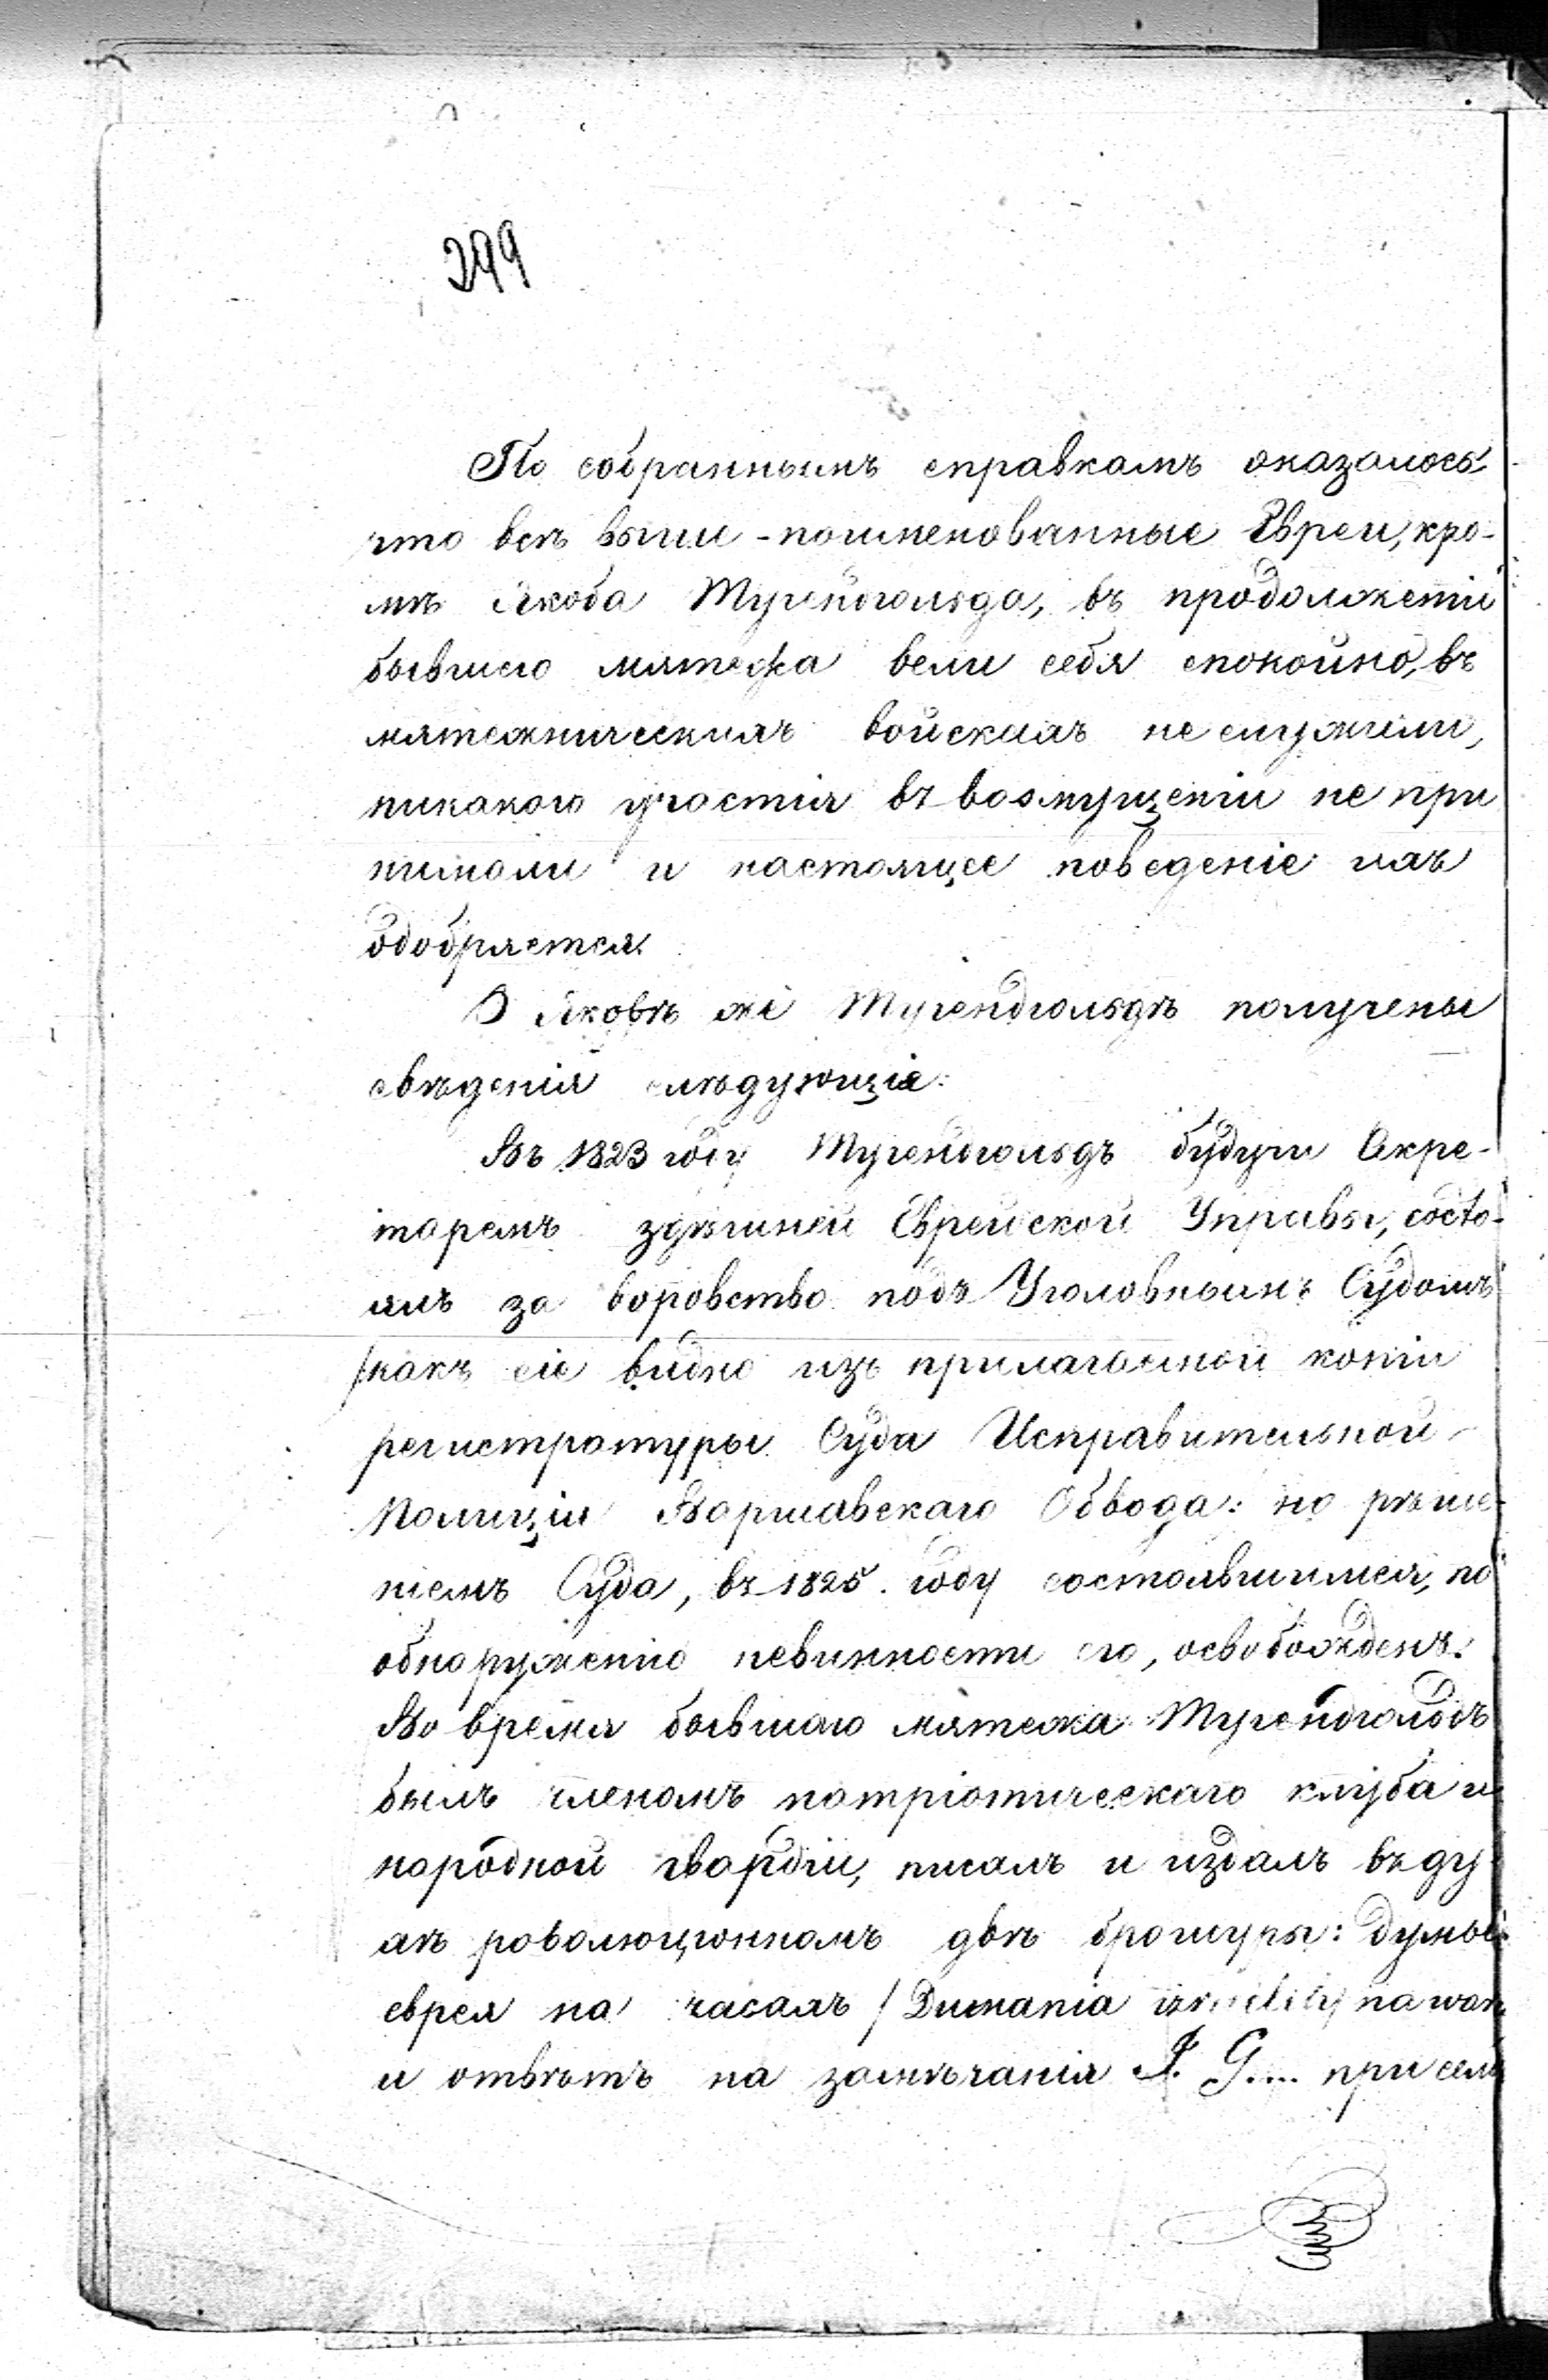 299
По собраннымъ справкамъ оказалось
что всѣ выше-поименованные Евреи, кро-
мѣ Якоба Тугендгольда, въ продолженіи
бывшего мятежа вели себя спокойно, въ
мятежническихъ войскахъ не служили,
никакого участія въ возмущеніи не при
нимали и настоящее поведеніе ихъ
одобряется.
О Яковѣ же Тугендгольдѣ получены
свѣденія слѣдующіе:
Въ 1823 году Тугендгольдъ будучи Секре-
таремъ здѣшней Еврейской Управы, состо-
ялъ за воровство подъ Уголовнымъ Судомъ
/какъ сіе видно изъ прилагаемой копіи
регистратуры Суда Исправительной
Полиціи Варшавскаго Обвода: но рѣше-
ніемъ Суда, въ 1825. году состоявшимся, по
обнаруженію невинности его, освобожденъ.
Во время бывшаго мятежа Тугендгольдъ
былъ членомъ патріотическаго клуба и
народной гвардіи, писалъ и издалъ въ ду-
хѣ революціонномъ двѣ брошуры: думы
еврея на часахъ / Dumania izraelity na war
и отвѣтъ на замѣчанія J. G.... при семъ